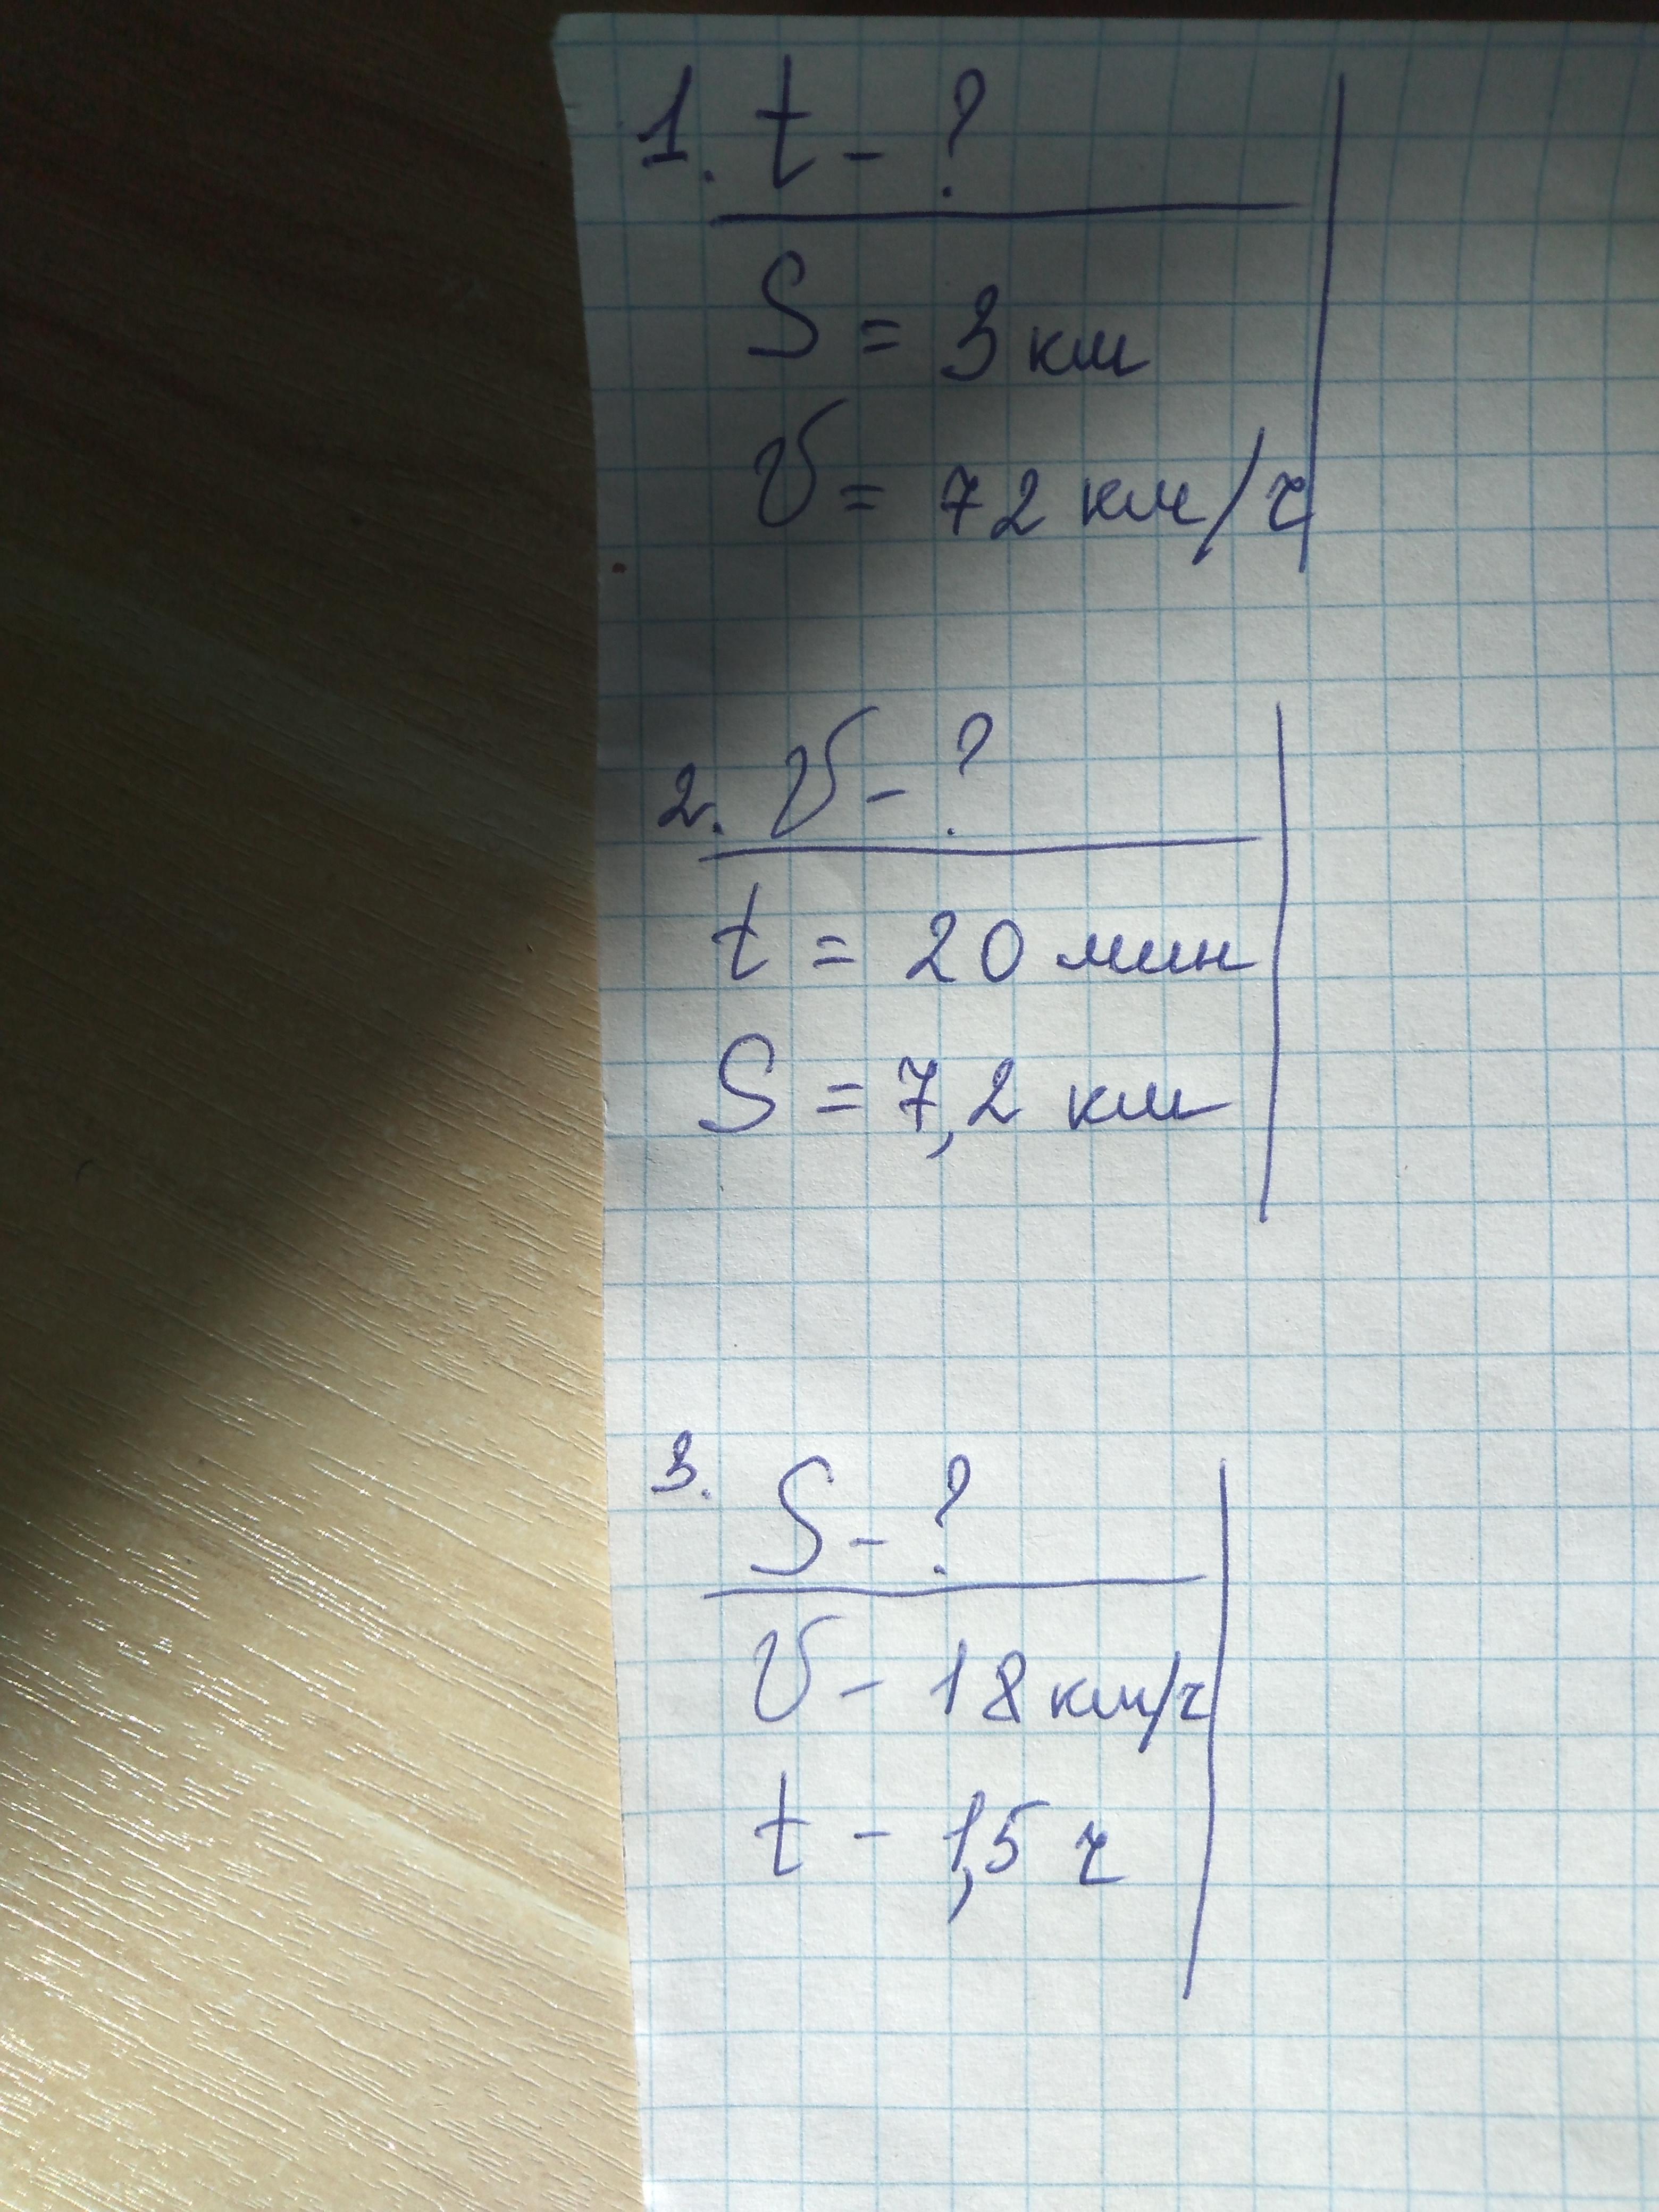 1. t - ?
S = 3 км
V = 72 км/ч
2. V - ?
t = 20 мин
S = 7,2 км
3. S - ?
V - 18 км/ч
t - 1,5 ч